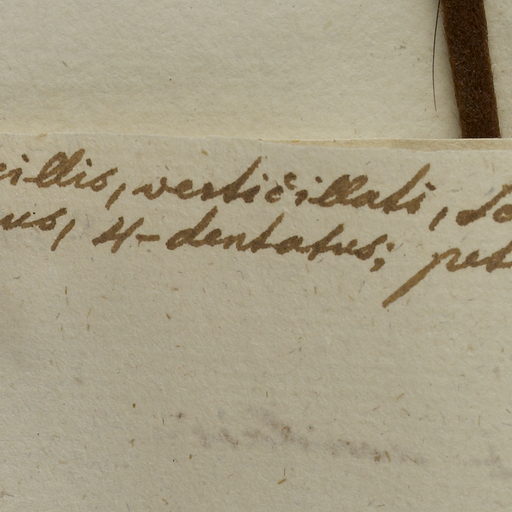 cillis, verticillati, so
us, 4-dentatus; pet